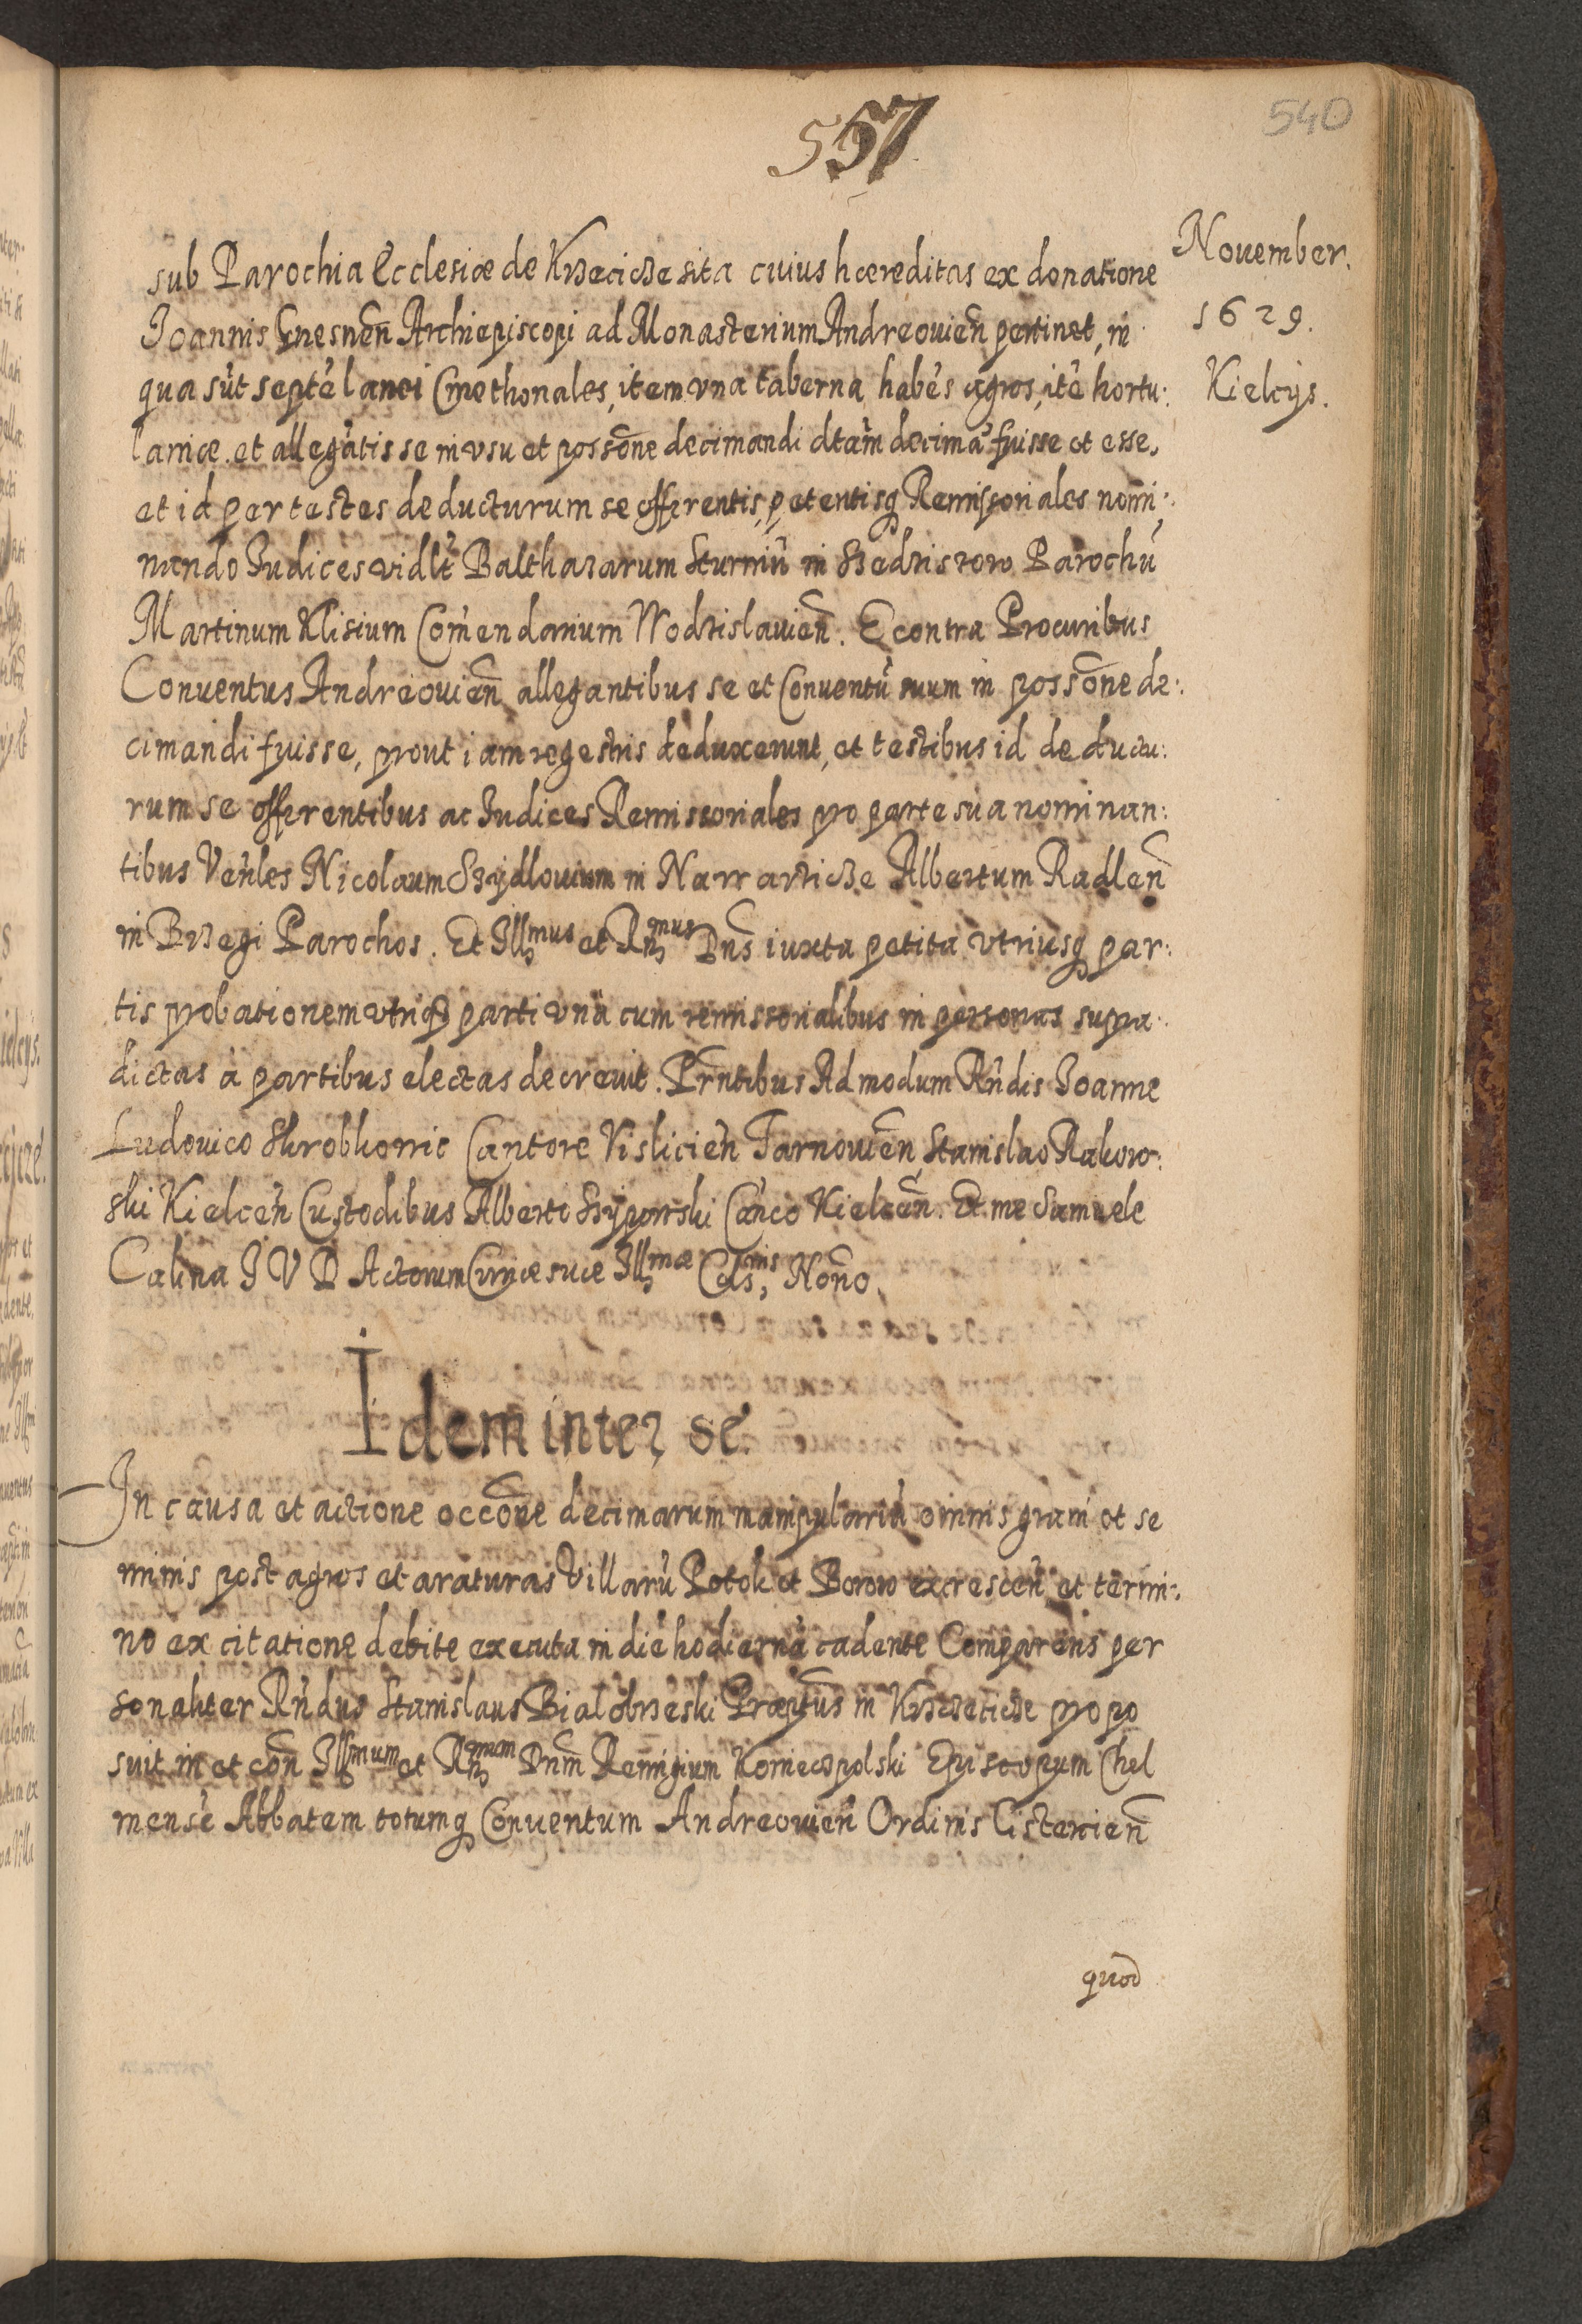 557
540
November.
1629.
Kielcijs.
sub Parochia Ecclesiæ de Krzecicze sita cuius hæreditas ex donatione
Joannis Gnesnen̄ Archiepiscopi ad Monasterium Andreouien̄ pertinet, in
qua sūt septē lanei Cmethonales, item vna taberna habēs agros, itē hortu:
lariæ. et allegātis se in vsu et possōne decimandi dtām decimā fuisse et esse,
et id per testes deducturum se offerentis, petentisq Remissoriales nomi:
nando Judices vidlt Balthazarum Sturmiū in Sedziszow Parochū
Martinum Klisium Com̄endarium Wodzislauien̄. E contra Procuribus
Conuentus Andreouien̄ allegantibus se et Conuentū suum in possōne de:
cimandi fuisse, prout iam regestris deduxerunt, et testibus id deductu:
rum se offerentibus ac Judices Remissoriales pro parte sua nominan:
tibus Ven̄les Nicolaum Szydlouium in Nawarzicze Albertum Radlen̄
in Brzegi Parochos. Et Illmus et Rnmus Dns̄ iuxta petita vtriusq par:
tis probationem vtriq parti vnà cum remissorialibus in personas supra
dictas à partibus electas decreuit. Prn̄tibus Admodum Rn̄dis Joanne
Ludouico Skrobkowic Cantore Vislicien̄ Tarnouien̄, Stanislao Rakow:
ski Kielcen̄ Custodibus Alberto Szypowski Cān̄co Kielcen̄. Et me Samuele
Calina J V D Actorum Curiæ suæ Illmæ Cels,nis Notō.
Idem inter se.
In causa et actione occōne decimarum manipulariū omnis grani et se
minis post agros et araturas Villarū Potok et Borow excrescen̄ et termi:
no ex citatione debite executa in diē hodiernā cadente Comparens per
sonaliter Rn̄dus Stanislaus Bialobrzeski Præptūs in Krzczeticze propo
suit in et con̄ Illmum et Rnmum Dnm̄ Remigium Koniecpolski Episcopum Chel
mensē Abbatem totumq Conuentum Andreouien̄ Ordinis Cistercien̄
quod